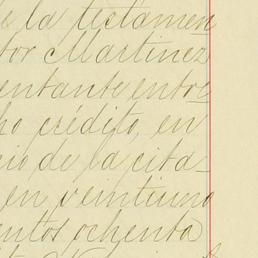 e la testamen
tor Martinez
entante entre
ho crédito, en
cio de la cita-
en veintiuno
entos ochenta